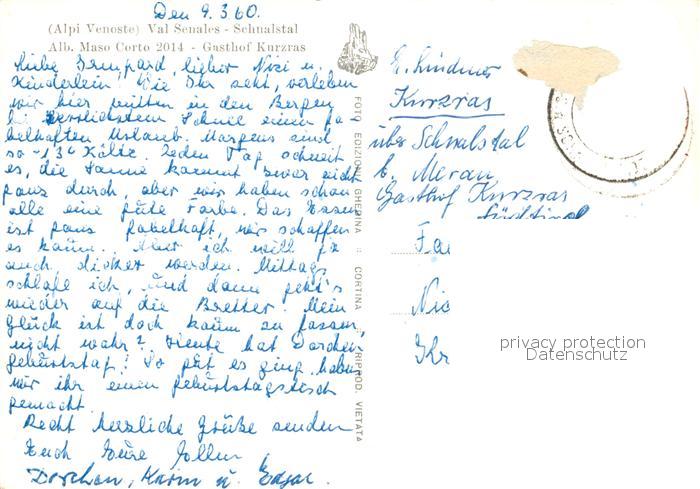 Den 9.3.60.
(Alpi Venoste) Val Senales - Schnalstal
Alb. Maso Corto 2014 - Gasthof Kurzras
Liebe Irmgard, lieber Nizi u.
Kinderlein! Wie Ihr seht, verleben
wir hier mitten in den Bergen
bei herrlichstem Schnee einen fa-
belhaften Urlaub. Morgens sind
so -13° Kälte. Jeden Tag schneit
es, die Sonne kommt zwar nicht
ganz durch, aber wir haben schon
alle eine gute Farbe. Das Essen
ist ganz fabelhaft, wir schaffen
es kaum. Aber ich will ja
auch dicker werden. Mittags
schlafe ich, und dann geht's
wieder auf die Bretter. Mein
Glück ist doch kaum zu fassen,
nicht wahr? Heute hat Dorchen
Geburtstag! So gut es ging haben
wir ihr einen Geburtstagstisch
gemacht.
Recht herzliche Grüße senden
Euch Eure
Dorchen, Karin u. Edgar.
FOTO EDIZIONI GHEDINA :: CORTINA
RIPROD. VIETATA
E. Lindner
Kurzras
über Schnalstal
b. Meran
Gasthof Kurzras
Südtirol
Fa
Nic
Kr
privacy protection
Datenschutz